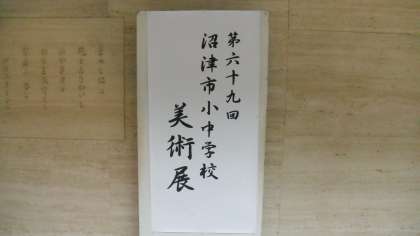 第六十九回
沼津市小中学校
美術展